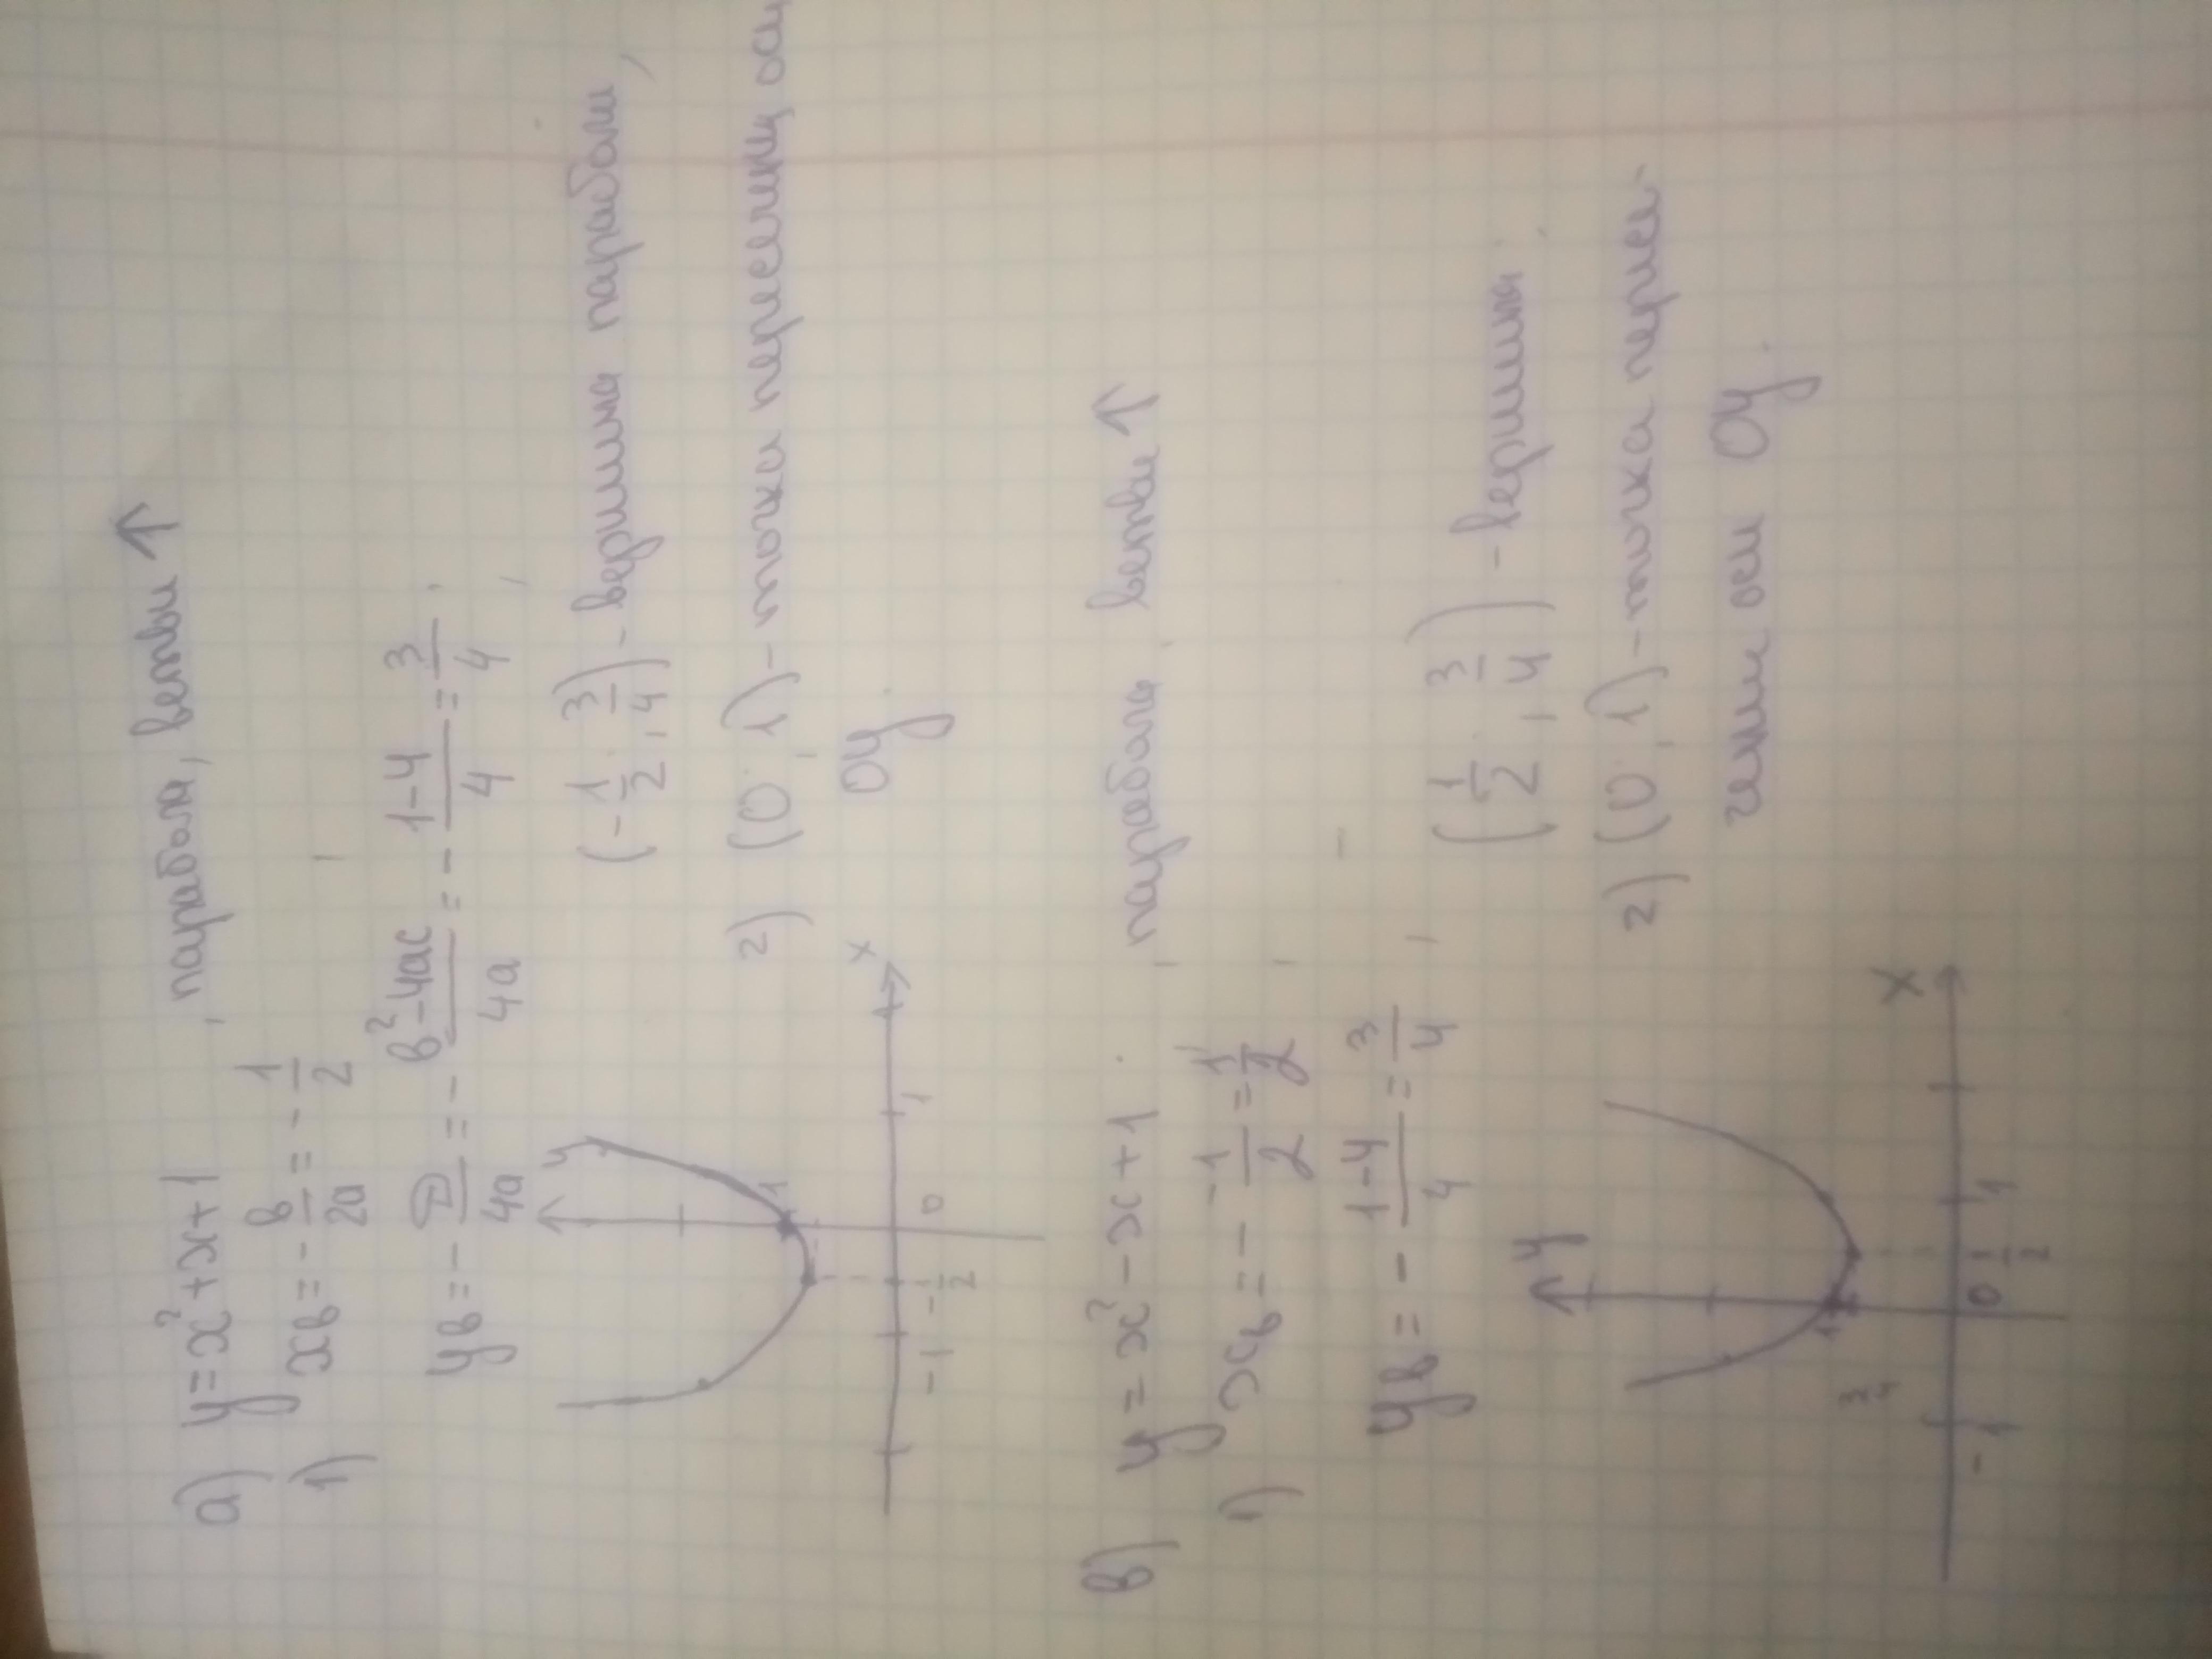 а) y=x²+x+1, парабола, ветви ↑
1) xв = -в/2a = -1/2
yв = -D/4a = -в²-4ac/4a = -1-4/4 = 3/4.
(-1/2; 3/4) - вершина параболы,
2) (0; 1) - точка
Oy
y
1
x
-1 -1/2 0 1
в) y = x² - x + 1, парабола, ветви ↑
1) xв = - -1/2 = 1/2
yв = - 1-4/4 = 3/4
(1/2; 3/4) - вершина
2) (0; 1) - точка пересе-
чения оси Oy.
y
1
3/4
x
-1 0 1/2 1